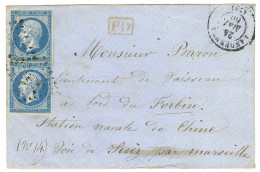 PD
Monsieur Baron
Lieutenant de Vaisseau
à bord du Forbin
Station navale de Chine
(N° 14) Voie de Suez par marseille